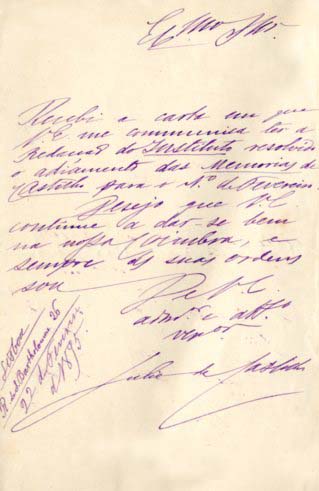 Exmo Snr.
Recebi a carta em que
V. E. me communica ter a
Redacção do Instituto resolvido
o adiamento das Memorias de
Castilho para o N.º de Fevereiro.
Desejo que V. E.
continue a dar-se bem
na nossa Coimbra, e
sempre ás suas ordens
sou
De V. E.
admor. e attº
venor
Julio de Castilho
Lisboa
R. de S. Bartholomeu 26
22 de
de 1895.